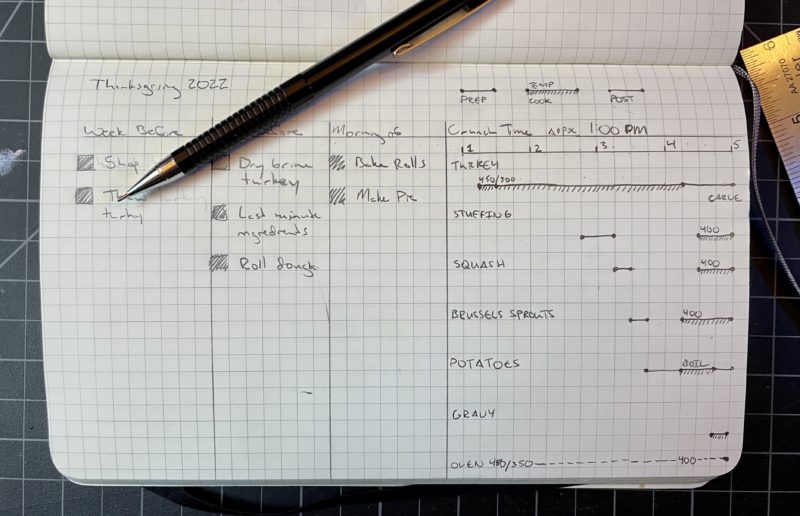 Thanksgiving 2022
PREP
TEMP
COOK
POST
Week Before
Morning of
Crunch Time appx 1:00 PM
1 2 3 4 5
Shop
turky
Dry brine
turkey
Last minute
ingredients
Roll dough
Bake Rolls
Make Pie
TURKEY
450/300
CARVE
STUFFING
400
SQUASH
400
BRUSSELS SPROUTS
400
POTATOES
BOIL
GRAVY
OVEN 450/350
400
6
5
AA 27070